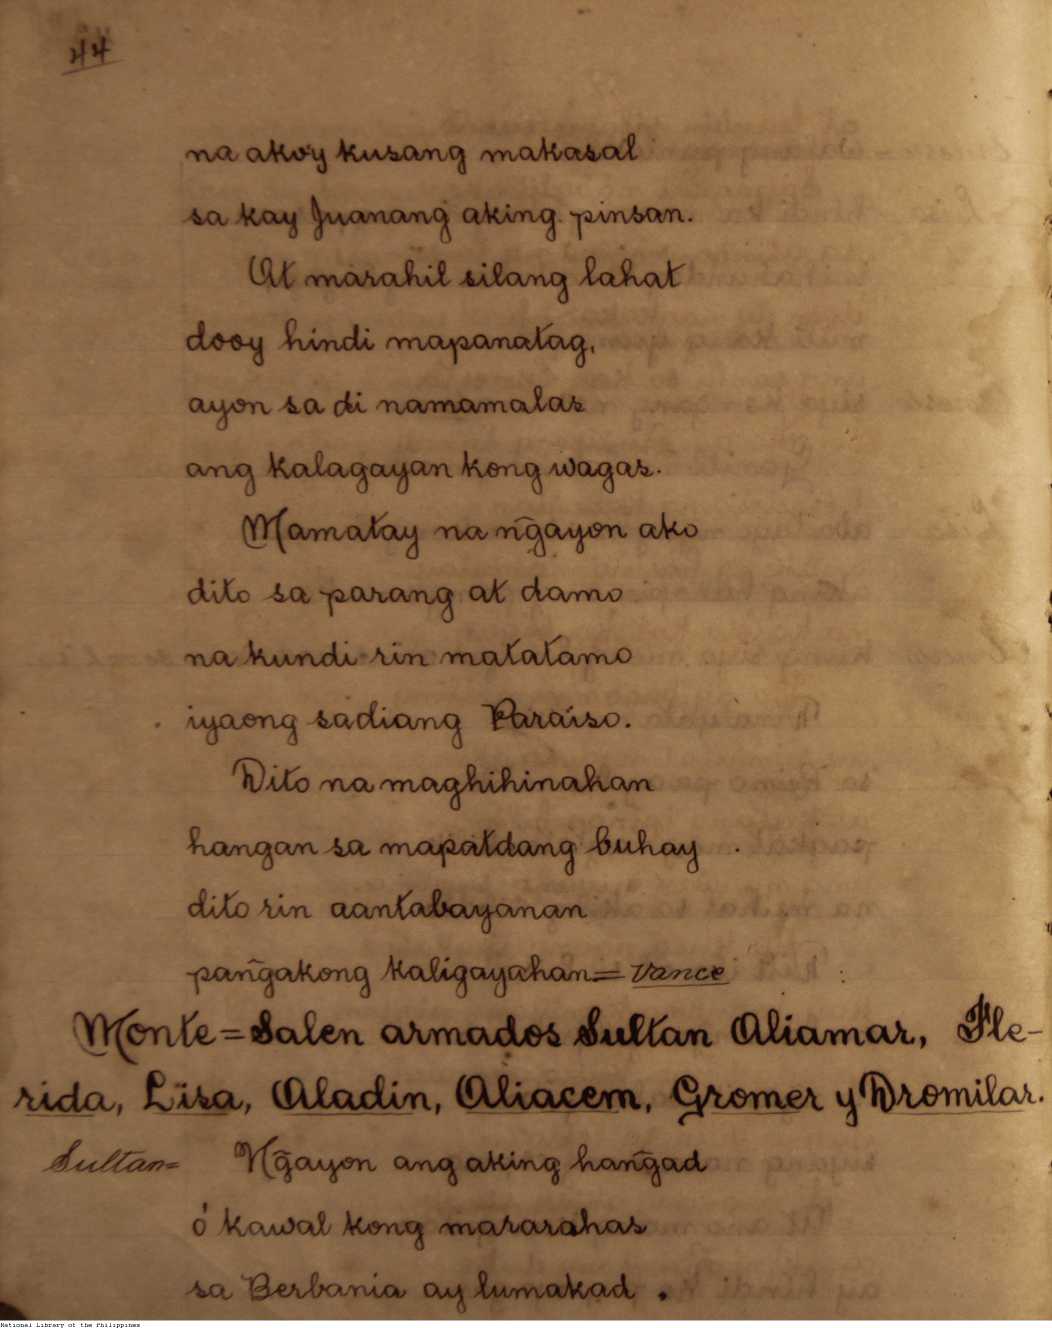 44
na akoy kusang makasal
sa kay Juanang aking pinsan.
At marahil silang lahat
dooy hindi mapanatag,
ayon sa di namamalas
ang kalagayan kong wagas.
Mamatay na ng̃ayon ako
dito sa parang at damo
na kundi rin matatamo
iyaong sadiang Paraiso.
Dito na maghihinahan
hangan sa mapatdang buhay
dito rin aantabayanan
pang̃akong kaligayahan = Vance
Monte = Salen armados Sultan Aliamar, Fle-
rida, Lisa, Aladin, Aliacem, Gromer y Dromilar.
Sultan = Ng̃ayon ang aking hang̃ad
ó kawal kong mararahas
sa Berbania ay lumakad.
National Library of the Philippines